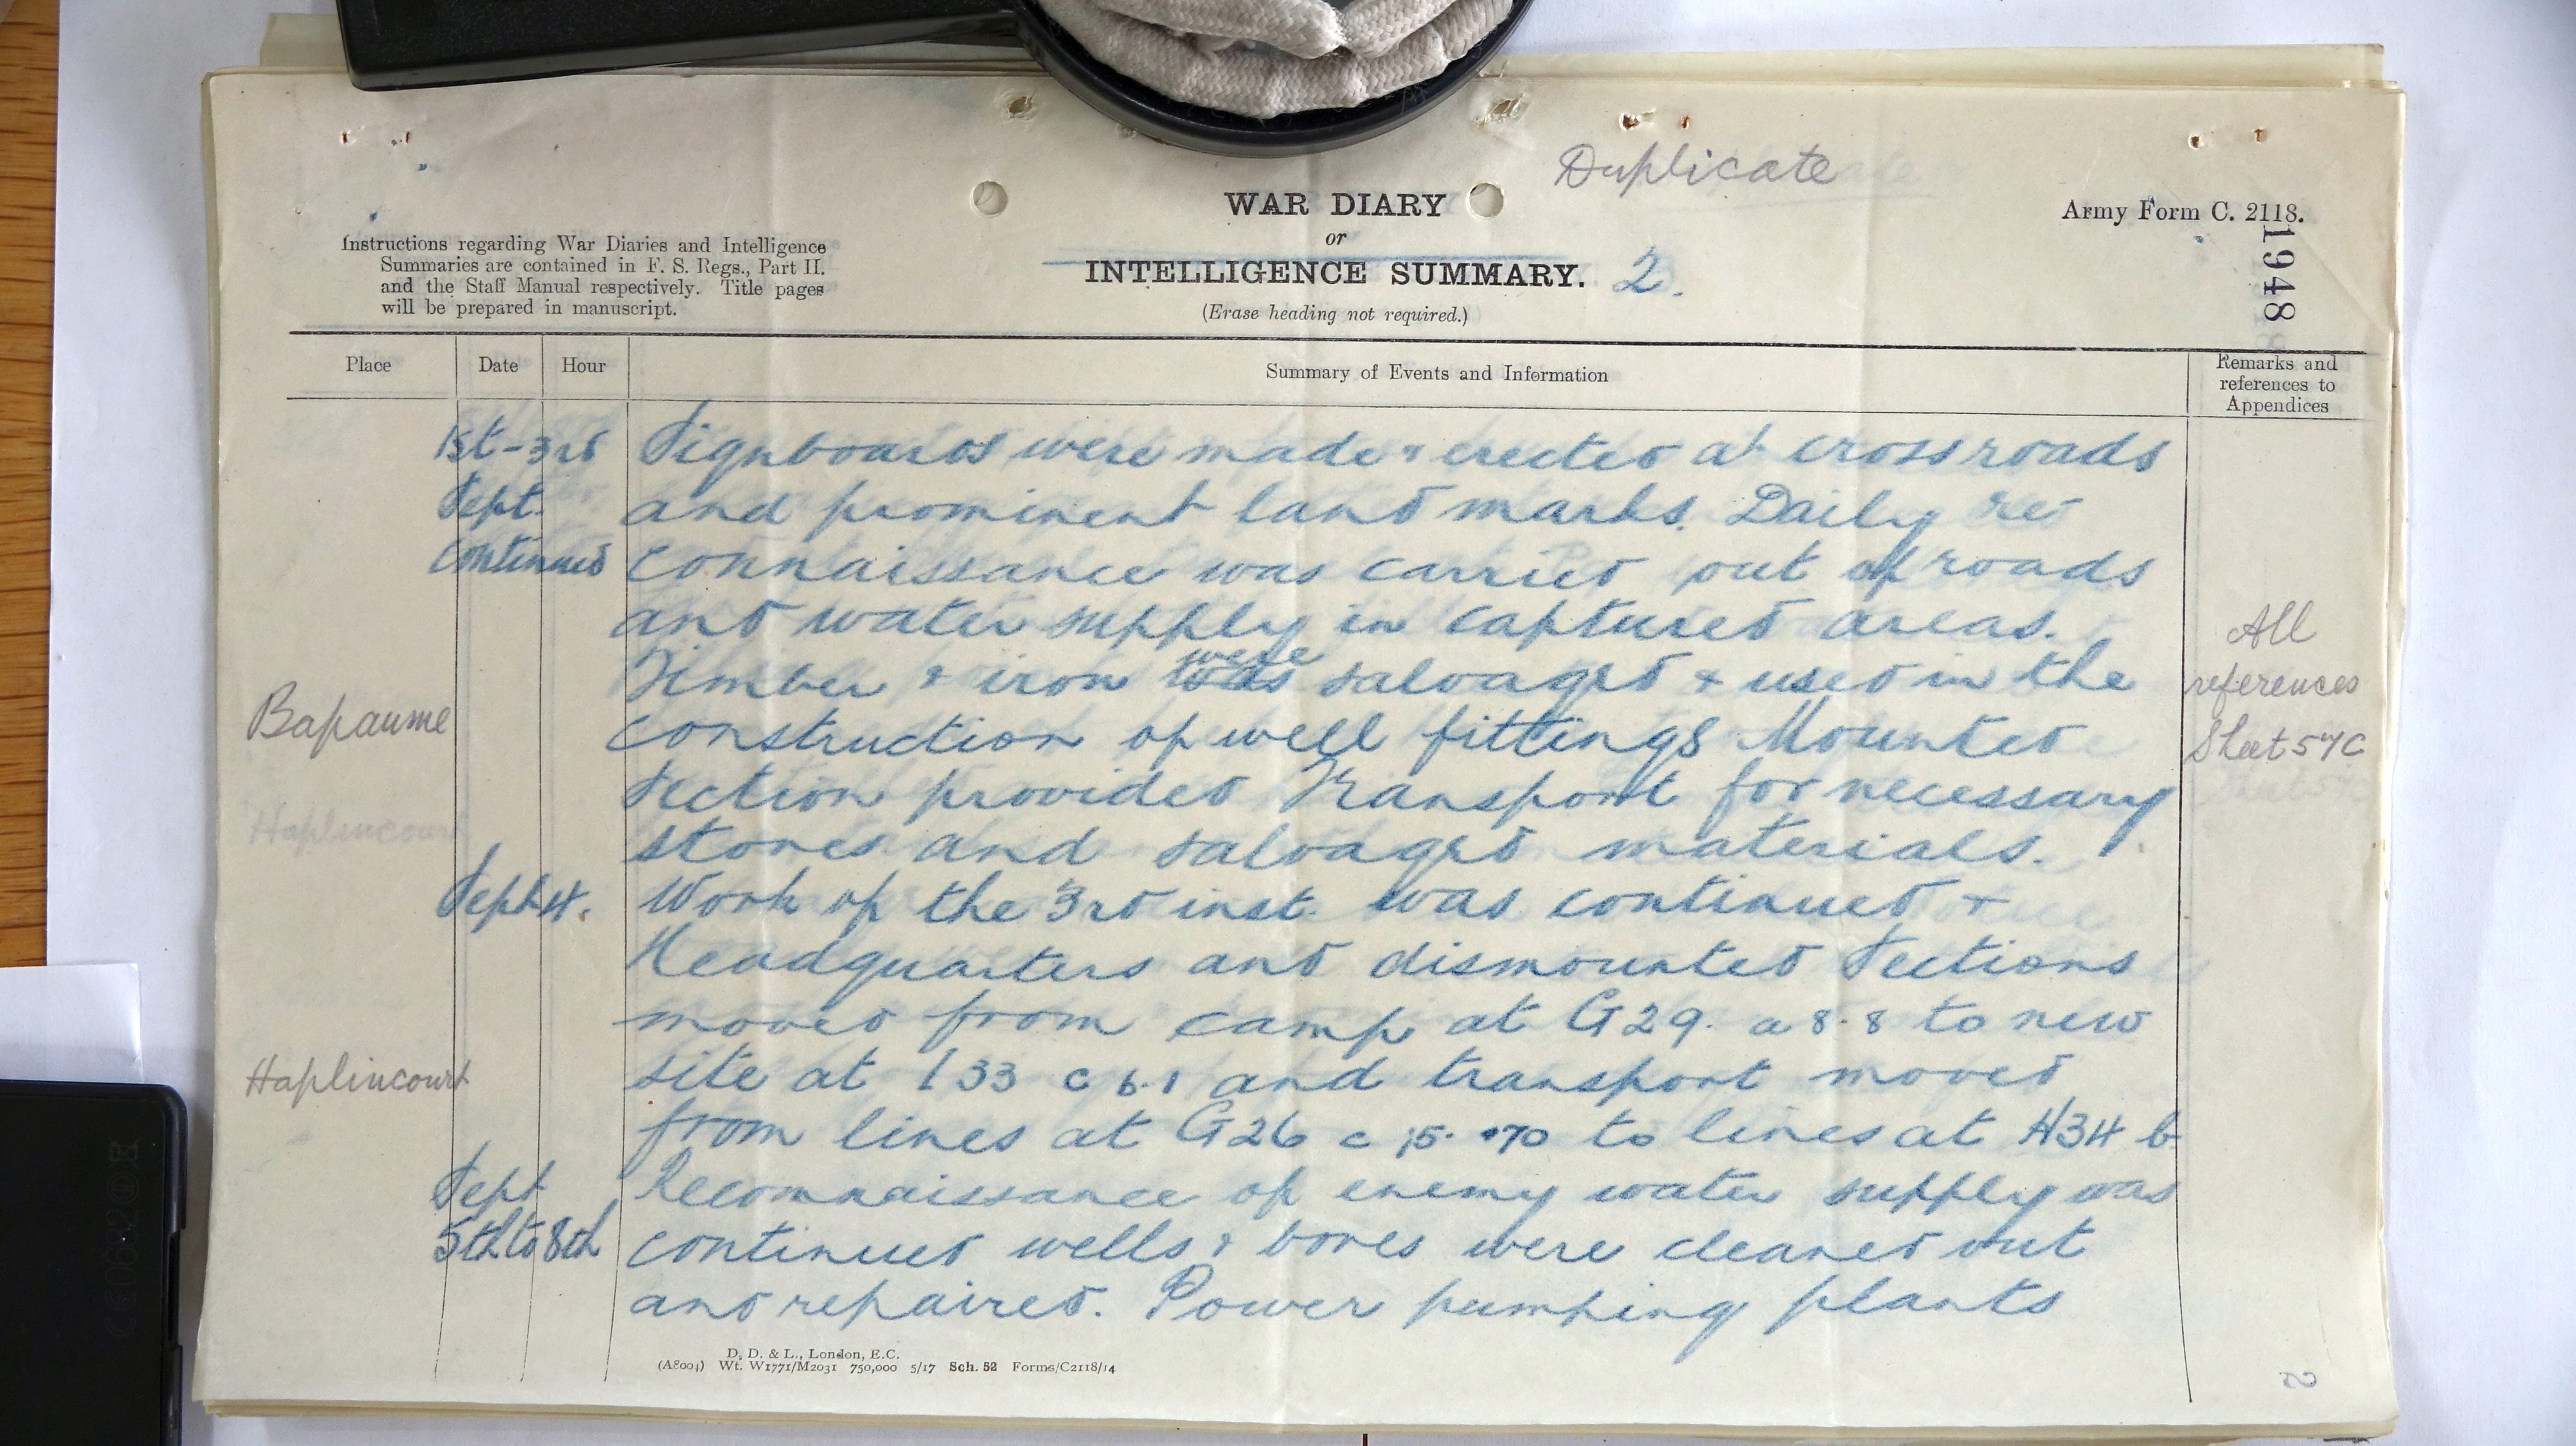 Duplicate
WAR DIARY
or
INTELLIGENCE SUMMARY. 2.
(Erase heading not required.)
Army Form C. 2118.
1948
Instructions regarding War Diaries and Intelligence
Summaries are contained in F. S. Regs., Part II.
and the Staff Manual respectively. Title pages
will be prepared in manuscript.
Place Date Hour Summary of Events and Information Remarks and references to Appendices
1st-3rd Signboards were made & erected at cross roads
Sept. and prominent land marks. Daily re-
continued connaissance was carried out of roads
and water supply in captured areas.
Timber & iron was were salvaged & used in the
Bapaume construction of well fittings Mounted
Section provided Transport for necessary
Haplincourt stores and salvaged materials.
All
references
Sheet 57C
Sept 4. Work of the 3rd inst. was continued &
Headquarters and dismounted Sections
moved from camp at G29. a 8.8 to new
Haplincourt site at I33 c 6.1 and transport moved
from lines at G26 c 15. 70 to lines at H34 b
Sept Reconnaissance of enemy water supply was
5th to 8th continued wells & bores were cleaned out
and repaired. Power pumping plants
D. D. & L., London, E.C.
(A8004) Wt. W1771/M2031 750,000 5/17 Sch. 52 Forms/C2118/14